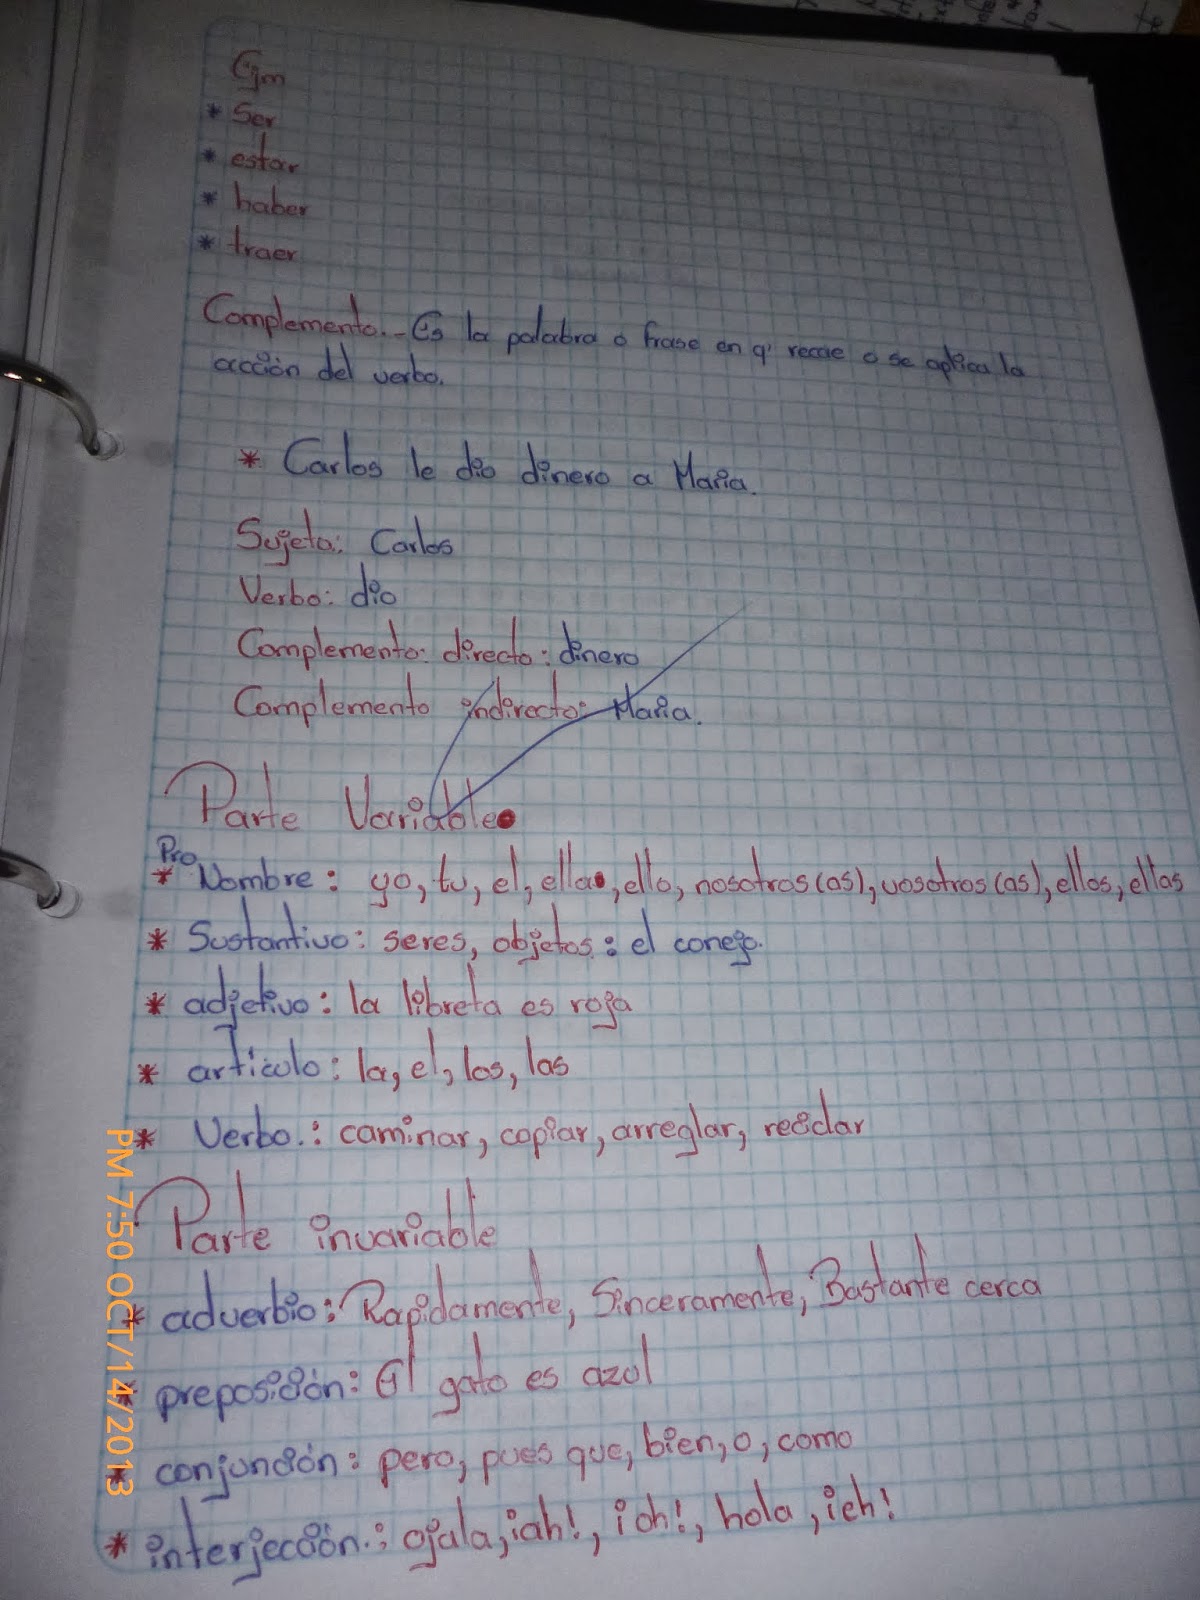 Ejm
* Ser
* estar
* haber
* traer
Complemento.- Es la palabra o frase en q' recae o se aplica la
acción del verbo.
* Carlos le dio dinero a Maria.
Sujeto: Carlos
Verbo: dio
Complemento directo: dinero
Complemento indirecto: Maria.
Parte Variable
Pro
* Nombre: yo, tu, el, ella, ello, nosotros(as), vosotros(as), ellos, ellas
* Sustantivo: seres, objetos: el conejo.
* adjetivo: la libreta es roja
* articulo: la, el, los, las
* Verbo.: caminar, copiar, arreglar, reciclar
Parte invariable
* adverbio: Rapidamente, Sinceramente, Bastante cerca
* preposición: El gato es azul
* conjunción: pero, pues que, bien, o, como
* interjección.: ojala, ¡ah!, ¡oh!, hola, ¡eh!
PM 7:50 OCT/14/2013